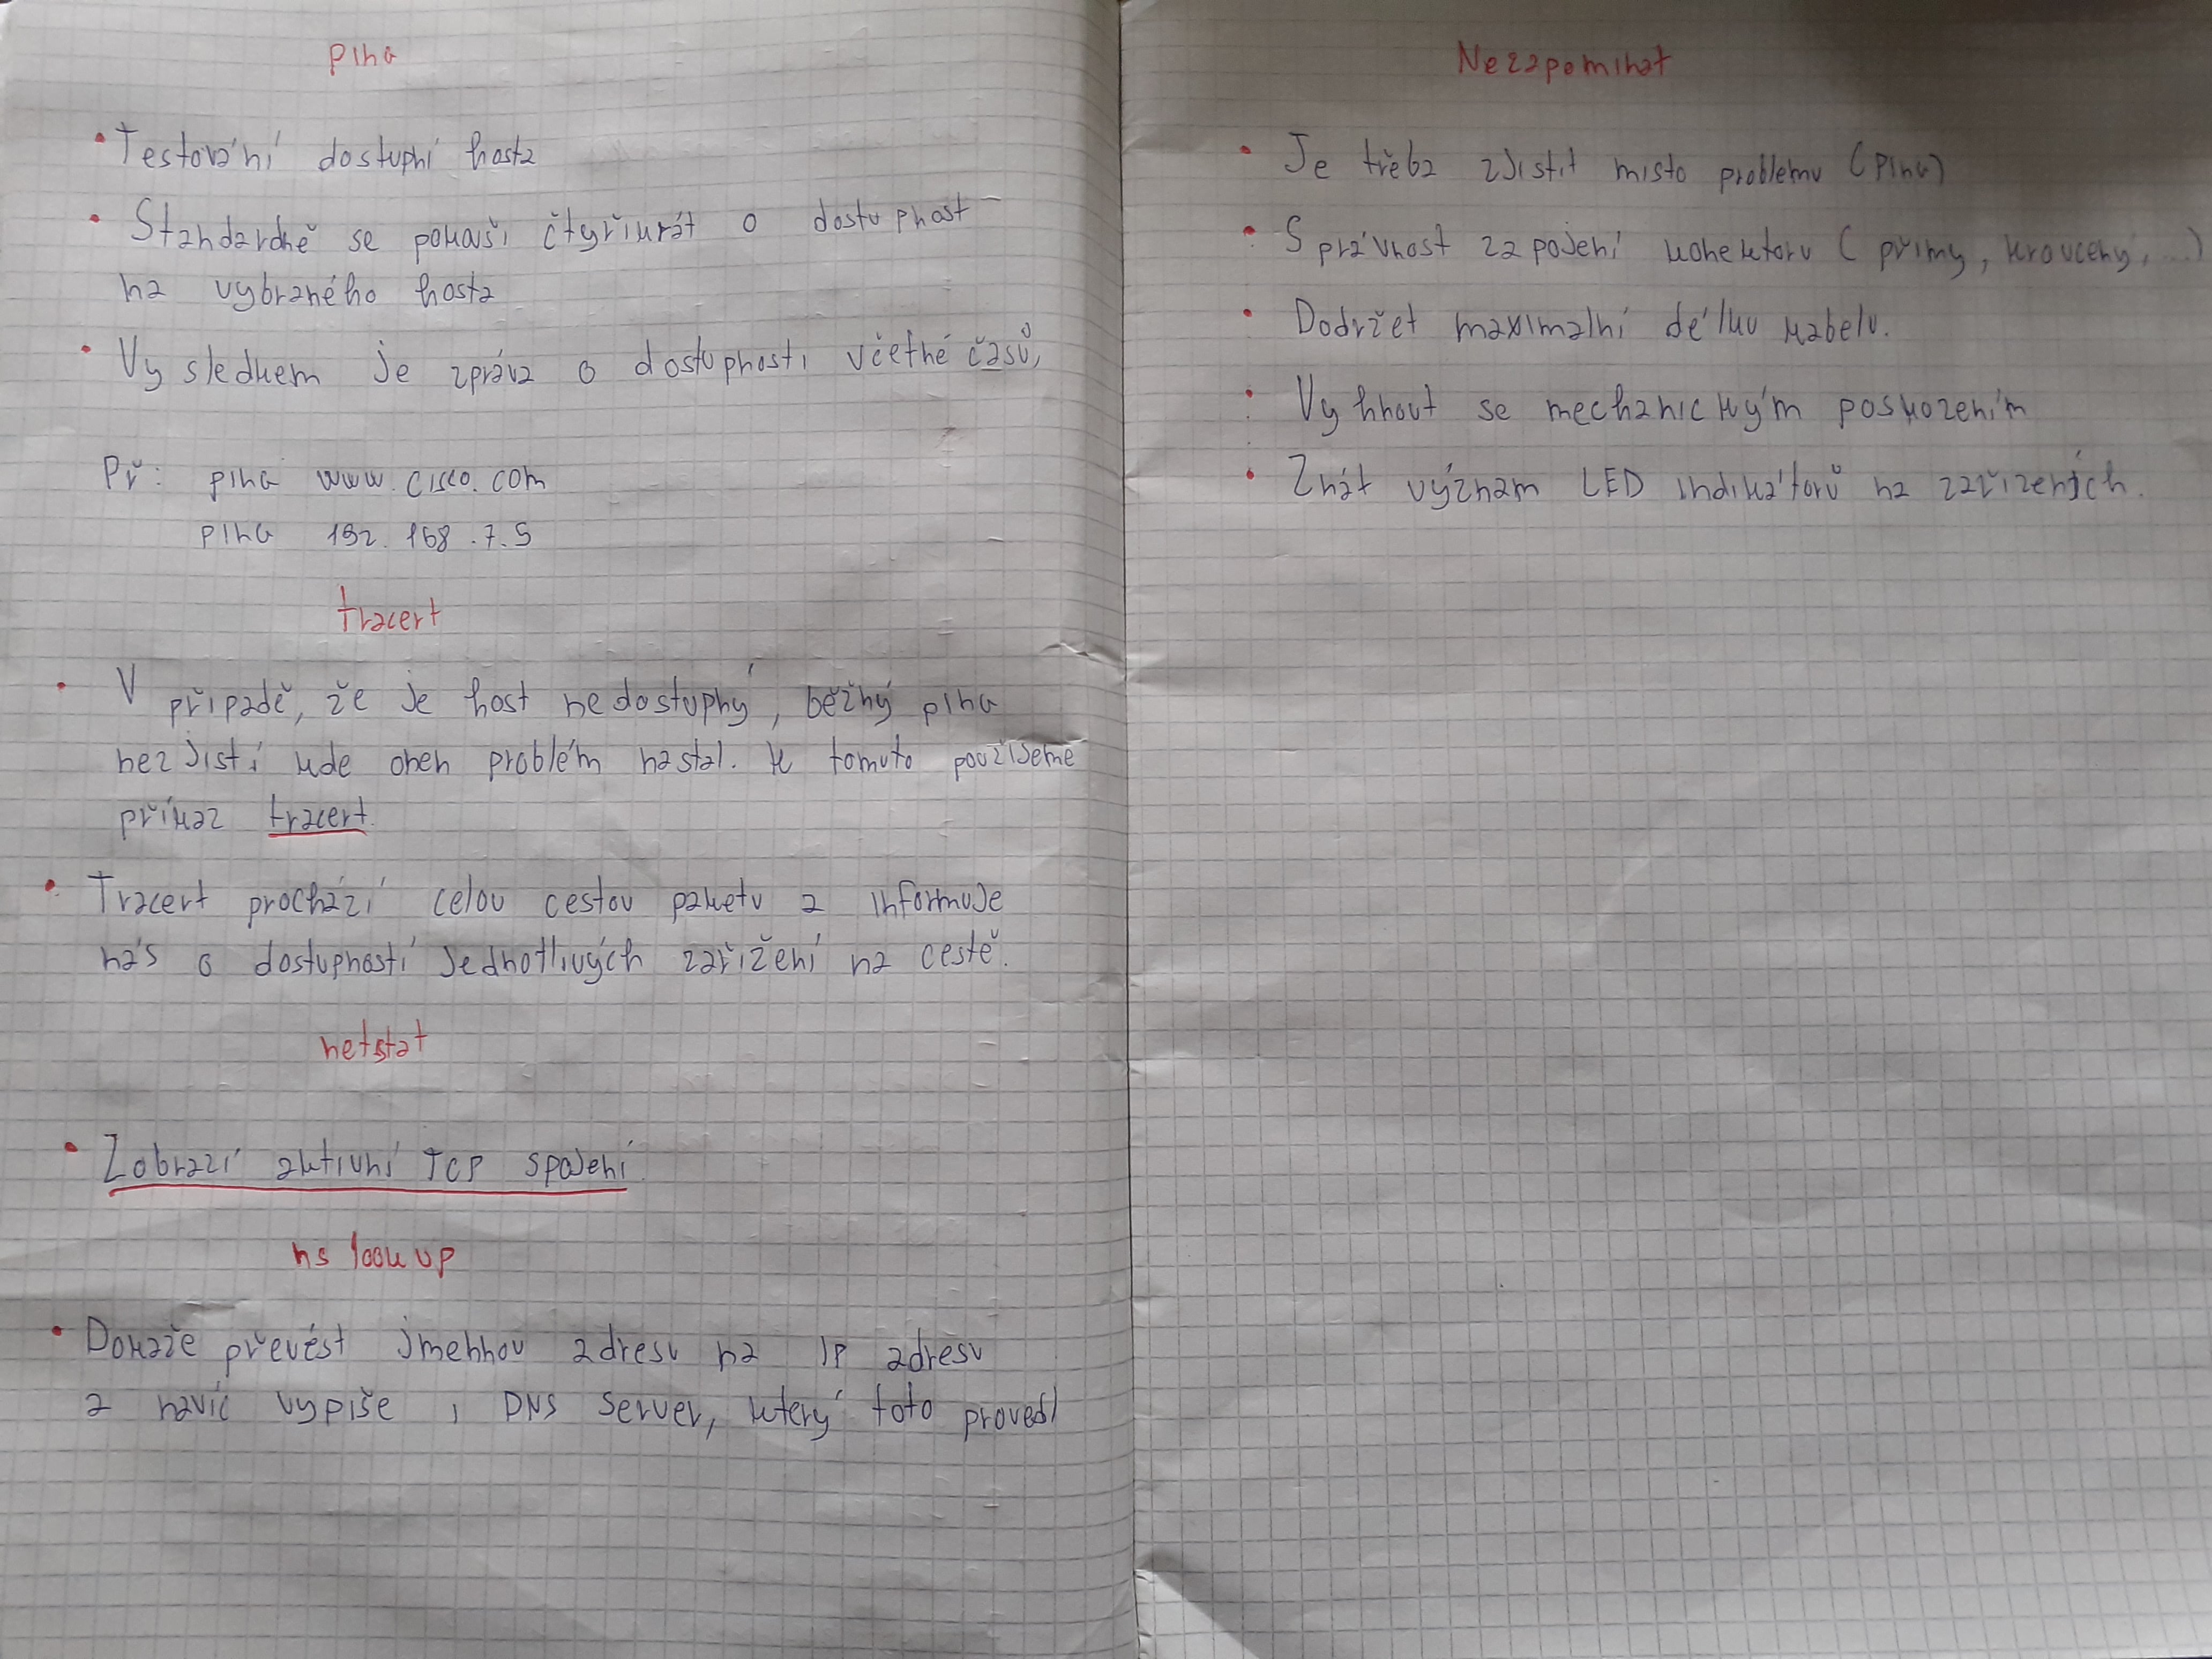 ping
• Testování dostupní hosta
• Standardně se pokouší čtyřikrát o dostupnost
na vybraného hosta
• Vysledkem je zpráva o dostupnosti včetně časů,
Př: ping www.cisco.com
ping 192.168.7.5
tracert
• V případě, že je host nedostupný, běžný ping
nezjistí kde onen problém nastal. K tomuto použijeme
příkaz tracert.
• Tracert prochází celou cestou paketu a informuje
nás o dostupnosti jednotlivých zařížení na cestě.
netstat
• Zobrazí aktivní TCP spojení.
nslookup
• Dokaže převést jmennou adresu na IP adresu
a navíc vypíše i DNS server, který toto provedl
Nezapominat
• Je třeba zjistit misto problemu (ping)
• Správnost zapojení konektoru (přimy, krouceny, ...)
• Dodržet maximalní délku kabelu.
• Vyhnout se mechanickým poskozením
• Znát význam LED indikátorů na zařizeních.